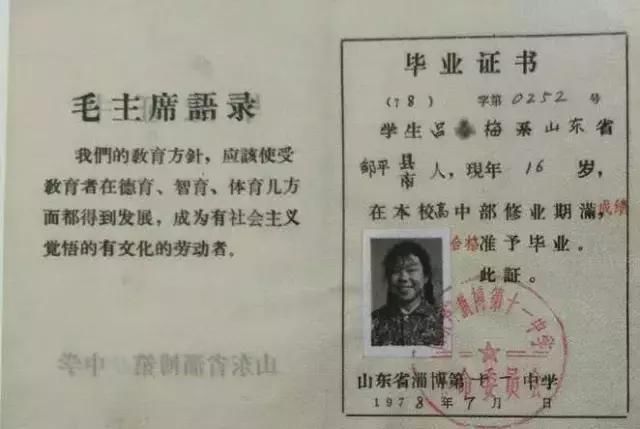 毛主席語录
我們的敎育方針，应該使受
敎育者在德育、智育、体育几方
面都得到发展，成为有社会主义
觉悟的有文化的劳动者。
山东省淄博第 中学
毕业证书
(78) 字第0252号
学生吕 梅系山东省
邹平县市人，現年16岁，
在本校高中部修业期滿，成绩
合格准予毕业。
此証。
淄博第十一中学
命委員会
山东省淄博第十一中学
1978年7月 日